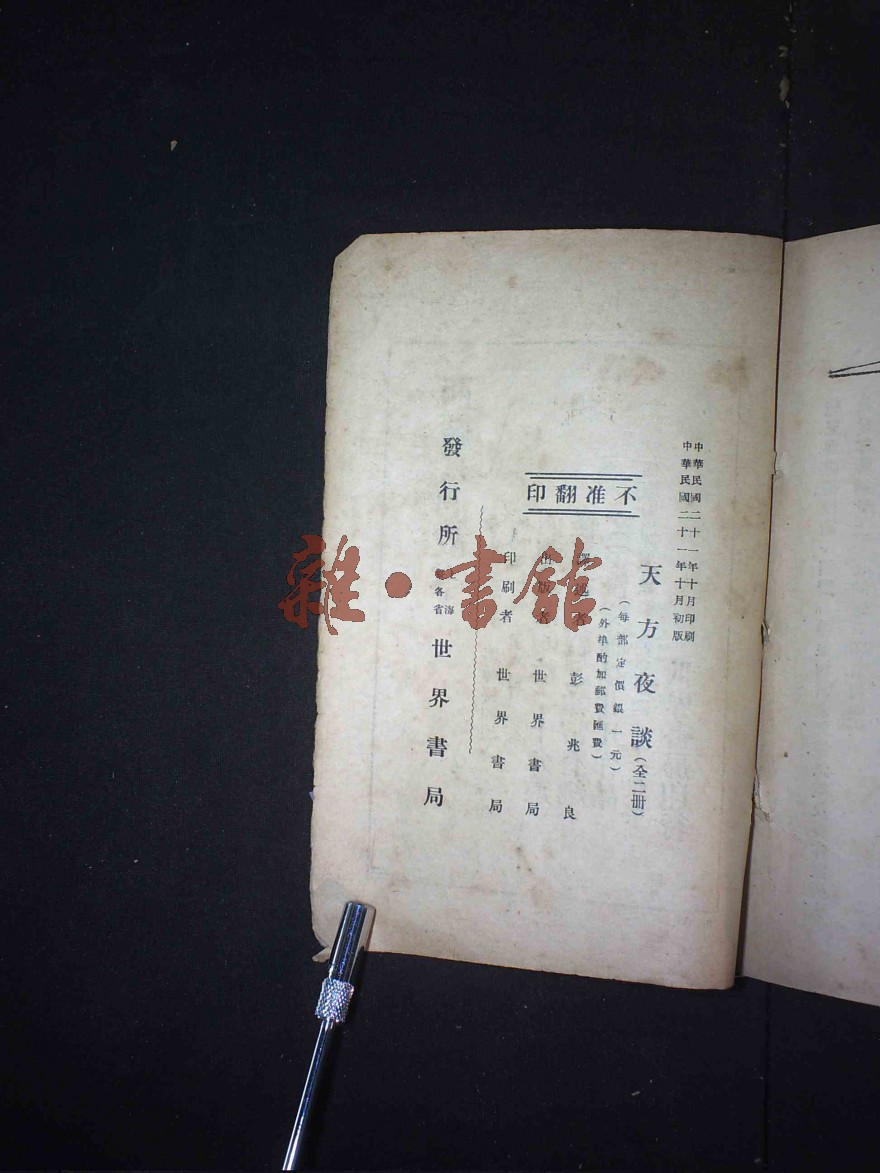 中華民國二十一年十月印刷
中華民國二十一年十月初版
天方夜談(全二册)
(每部定價銀一元)
(外埠酌加郵費匯費)
不准翻印
譯述者 彭兆良
出版者 世界書局
印刷者 世界書局
發行所 海各省 世界書局
雜·書館